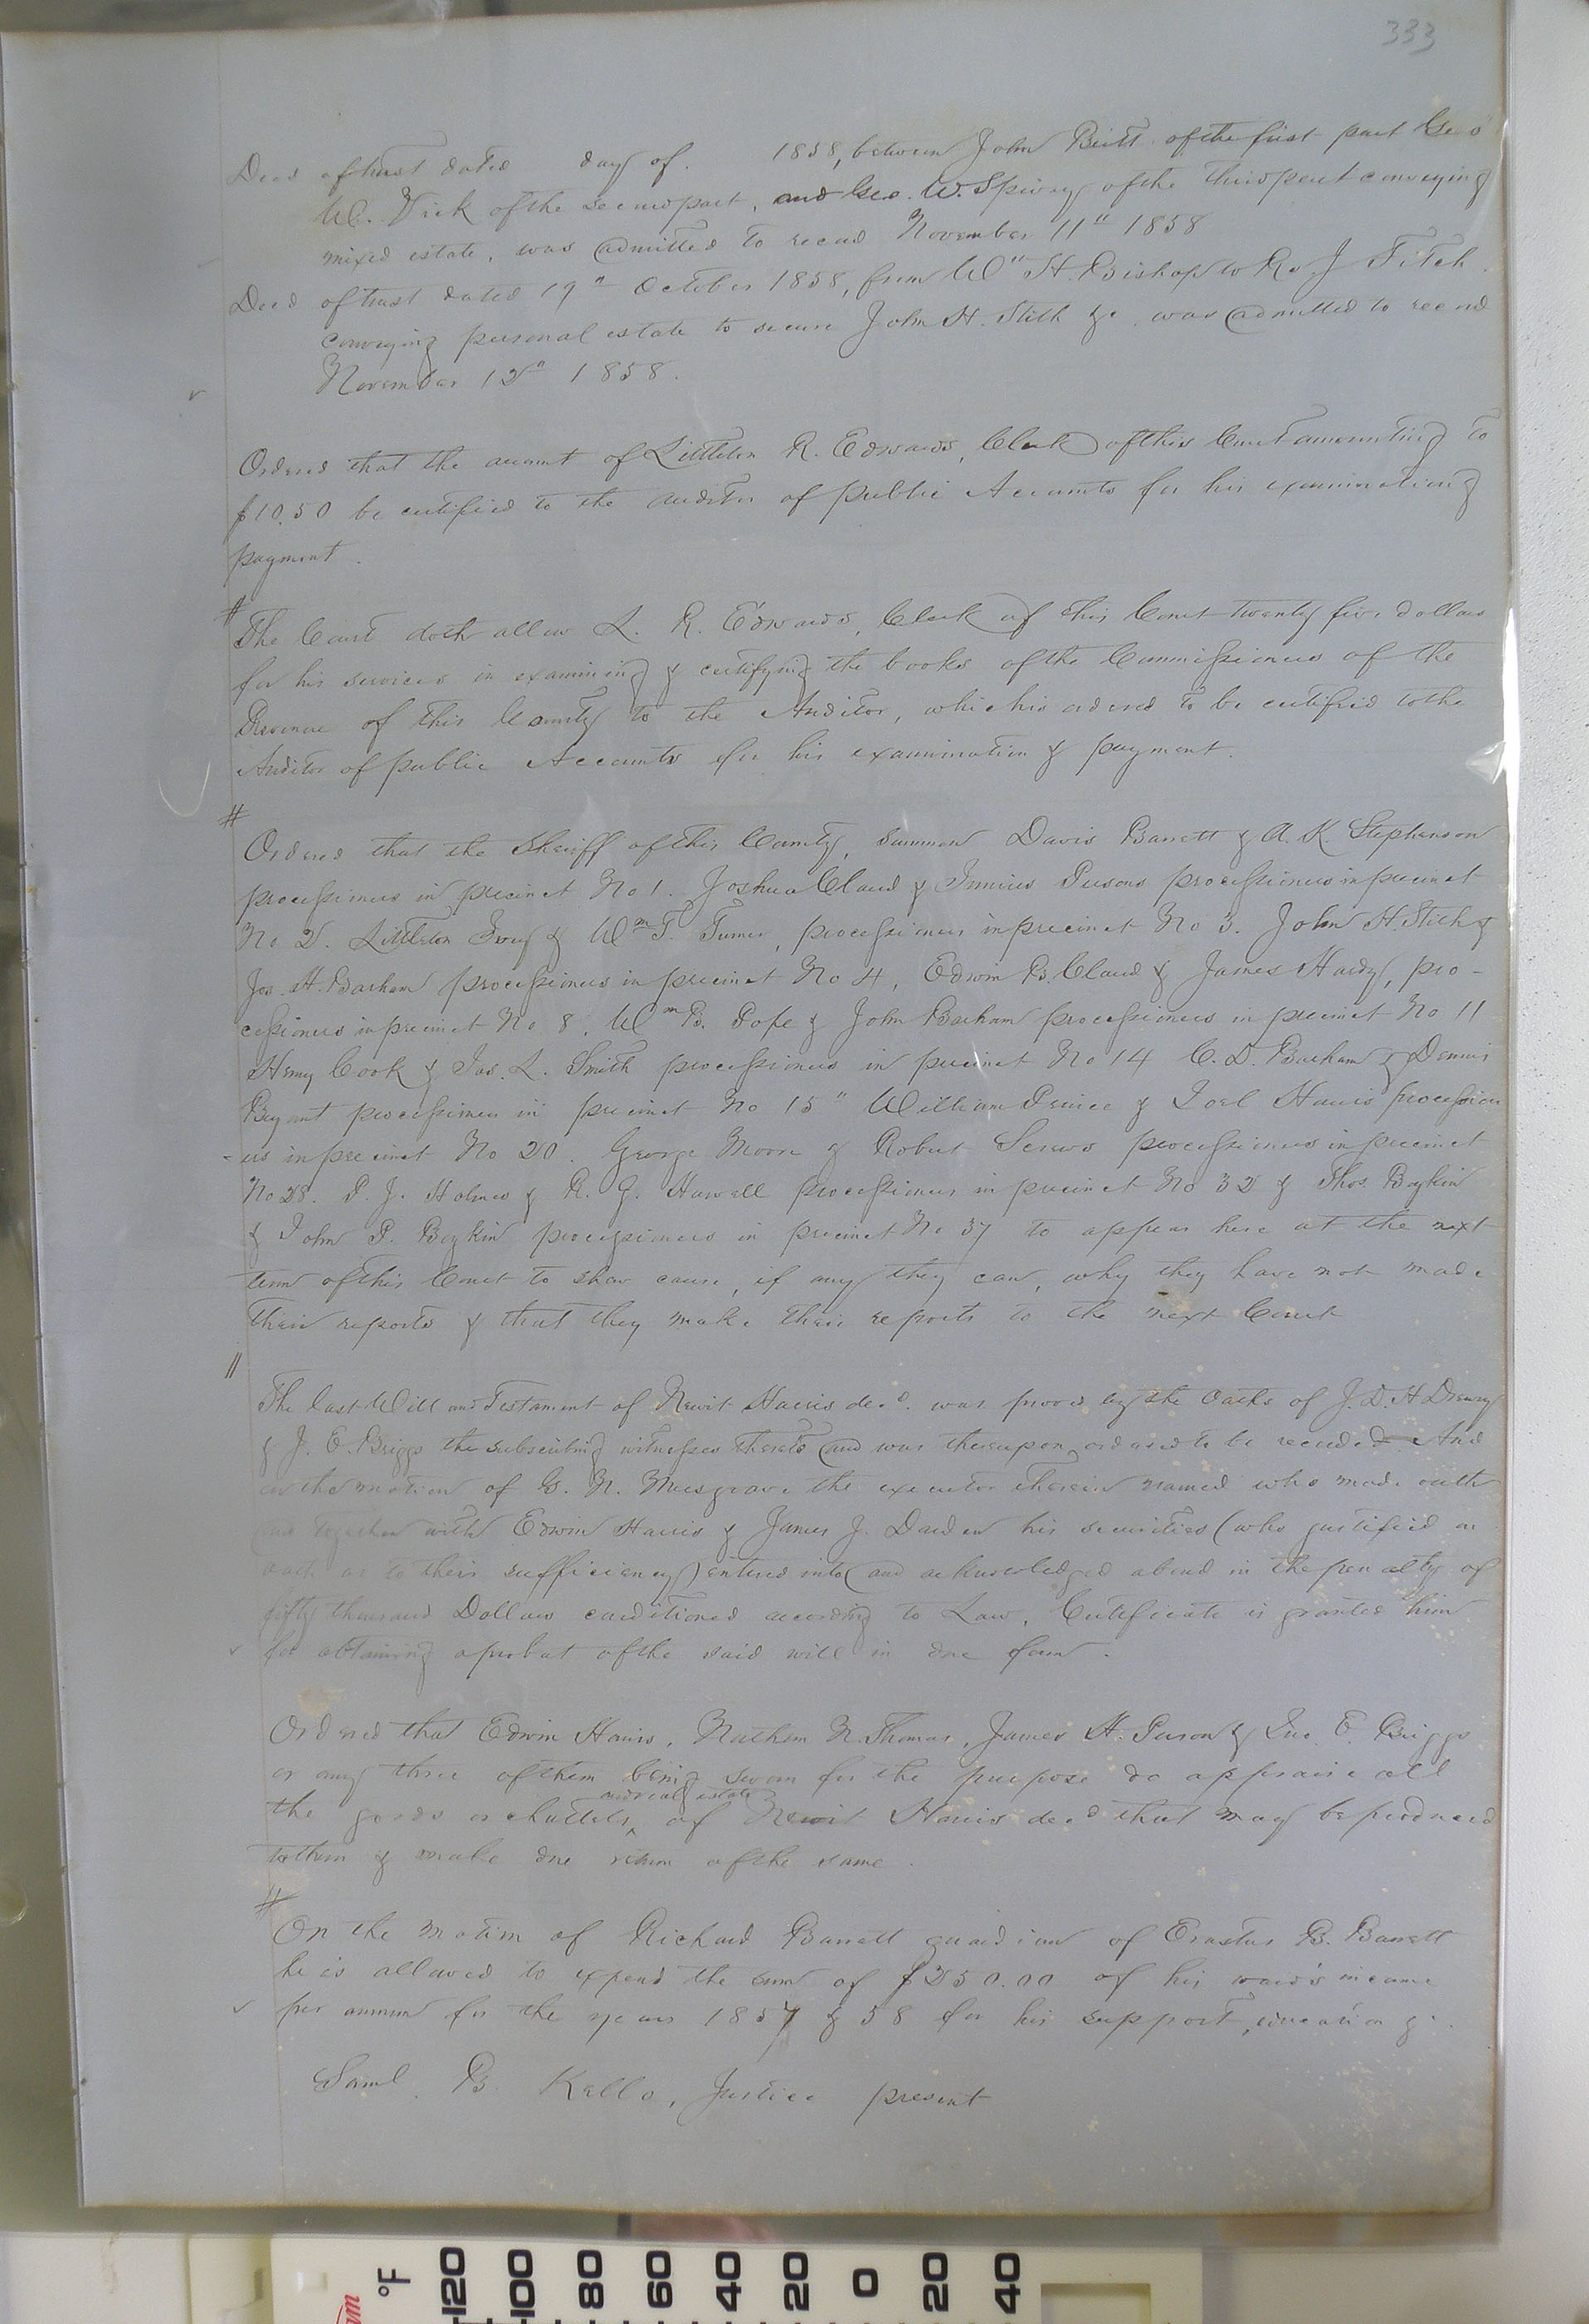 333
Deed of trust dated day of 1858, between John Britt of the first part Geo
W. Vick of the second part, and Geo. W. Spivey of the third part conveying
mixed estate, was admitted to record November 11" 1858
Deed of trust dated 19" October 1858, from Wm H. Bishop to Ro J Fitch
conveying personal estate to secure John H. Stith &c was admitted to record
November 12" 1858.
Ordered that the account of Littleton R. Edwards, Clerk of this Court amounting to
$10.50 be certified to the auditor of public Accounts for his examination &
payment.
#
The Court doth allow L. R. Edwards, Clerk of this Court twenty five dollars
for his services in examining & certifying the books of the Commissioners of the
Revenue of this County to the Auditor, which is ordered to be certified to the
Auditor of public Accounts for his examination & payment.
#
Ordered that the Sheriff of this County, summon Davis Barrett & A. K. Stephenson
processioners in precinct No 1. Joshua Claud & Junius Persons processioners in precinct
No 2. Littleton & Wm T. Turner, processioners in precinct No 3. John H. Stith &
Jos. H. Barham processioners in precinct No 4, Edwin B. Claud & James Hardy, pro-
cessioners in precinct No 8, Wm B. Pope & John Barham processioners in precinct No 11
Henry Cook & Jas. L. Smith processioners in precinct No 14 C. D. Barham & Dennis
Bryant processioners in precinct No 15" William Prince & Joel Harris procession
-ers in precinct No 20. George Moore & Robert Screws processioners in precinct
No 28. P. J. Holmes & R. G. Harrell processioners in precinct No 32 & Thos. Boykin
& John P. Boykin processioners in precinct No 37 to appear here at the next
term of this Court to show cause, if any they can, why they have not made
their reports & that they make their reports to the next Court
//
The last Will and Testament of Newit Harris decd. was proved by the Oaths of J. D. H Drewry
& J. E. Briggs the subscribing witnesses thereto and was thereupon ordered to be recorded And
on the motion of G. N. Musgrave the executor therein named who made oath
and together with Edwin Harris & James J. Darden his securities (who justified on
oath as to their sufficiency) entered into and acknowledged a bond in the penalty of
fifty thousand Dollars conditioned according to Law, Certificate is granted him
for obtaining a probat of the said will in due form.
Ordered that Edwin Harris, Nathan N. Thomas, James H. Person & Jno. E. Briggs
or any three of them being sworn for the purpose do appraise all
and real estate
the goods or chattels, ^ of Newit Harris decd that may be produced
to them & make due return of the same.
#
On the motion of Richard Barrett guardian of Erastus B. Barrett
he is allowed to expend the sum of $250.00 of his ward's income
per annum for the years 1857 & 58 for his support, education &c.
Saml. B. Kello, Justice present
°F
120 100 80 60 40 20 0 20 40